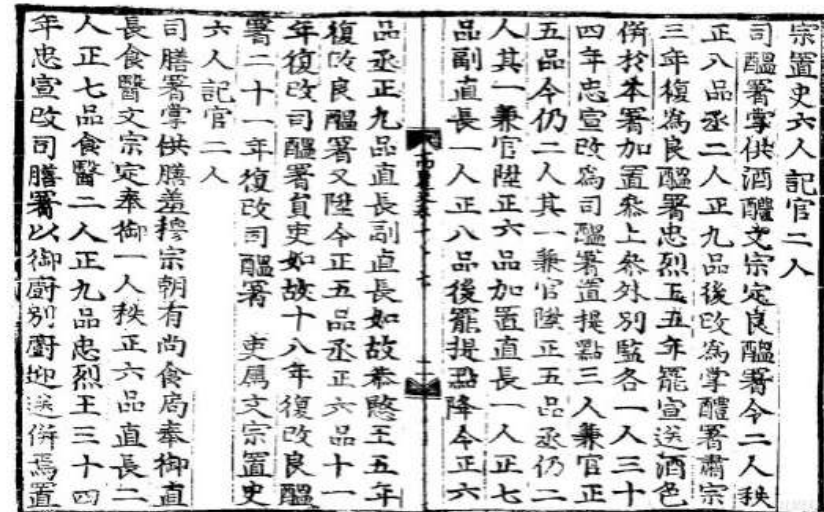 宗置史六人記官二人
司醞署掌供酒醴文宗定良醞署令二人秩
正八品丞二人正九品後改為掌醴署肅宗
三年復為良醞署忠烈王五年罷宣送酒色
倂於本署加置叅上叅外別監各一人三十
四年忠宣改為司醞署置提點三人兼官正
五品令仍二人其一兼官陞正五品丞仍二
人其一兼官陞正六品加置直長一人正七
品副直長一人正八品後罷提點降令正六
品丞正九品直長副直長如故恭愍王五年
復改良醞署又陞令正五品丞正六品十一
年復改司醞署員吏如故十八年復改良醞
署二十一年復改司醞署 吏屬文宗置史
六人記官二人
司膳署掌供膳羞穆宗朝有尚食局奉御直
長食醫文宗定奉御一人秩正六品直長二
人正七品食醫二人正九品忠烈王三十四
年忠宣改司膳署以御廚別廚迎送倂焉置